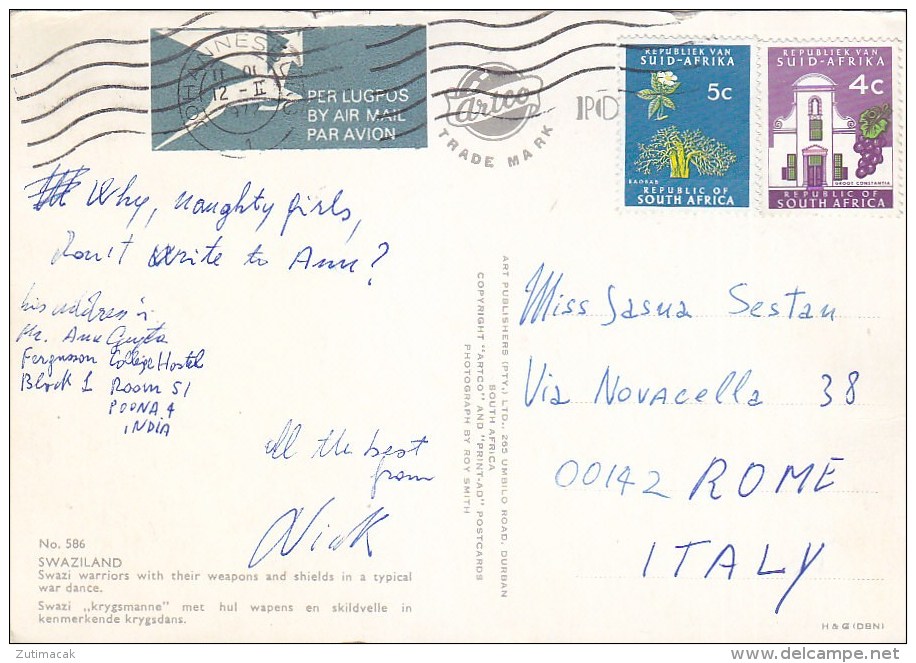 JOHANNESBURG
12 - II
PER LUGPOS
BY AIR MAIL
PAR AVION
artco
TRADE MARK
REPUBLIEK VAN
SUID-AFRIKA
5c
BAOBAB
REPUBLIC OF
SOUTH AFRICA
REPUBLIEK VAN
SUID-AFRIKA
4c
GROOT CONSTANTIA
REPUBLIC OF
SOUTH AFRICA
Why, naughty girls,
don't write to Anu?
his address is
Mr. Anu Gupta
Fergusson College Hostel
Block 1 Room 51
POONA 4
INDIA
All the best
from
Nick
No. 586
SWAZILAND
Swazi warriors with their weapons and shields in a typical
war dance.
Swazi „krygsmanne" met hul wapens en skildvelle in
kenmerkende krygsdans.
ART PUBLISHERS (PTY.) LTD., 265 UMBILO ROAD, DURBAN
SOUTH AFRICA
COPYRIGHT "ARTCO" AND "PRINT-AD" POSTCARDS
PHOTOGRAPH BY ROY SMITH
Miss Jasna Sestan
Via Novacella 38
00142 ROME
ITALY
H & G (DBN)
Zutimacak
delcampe.net